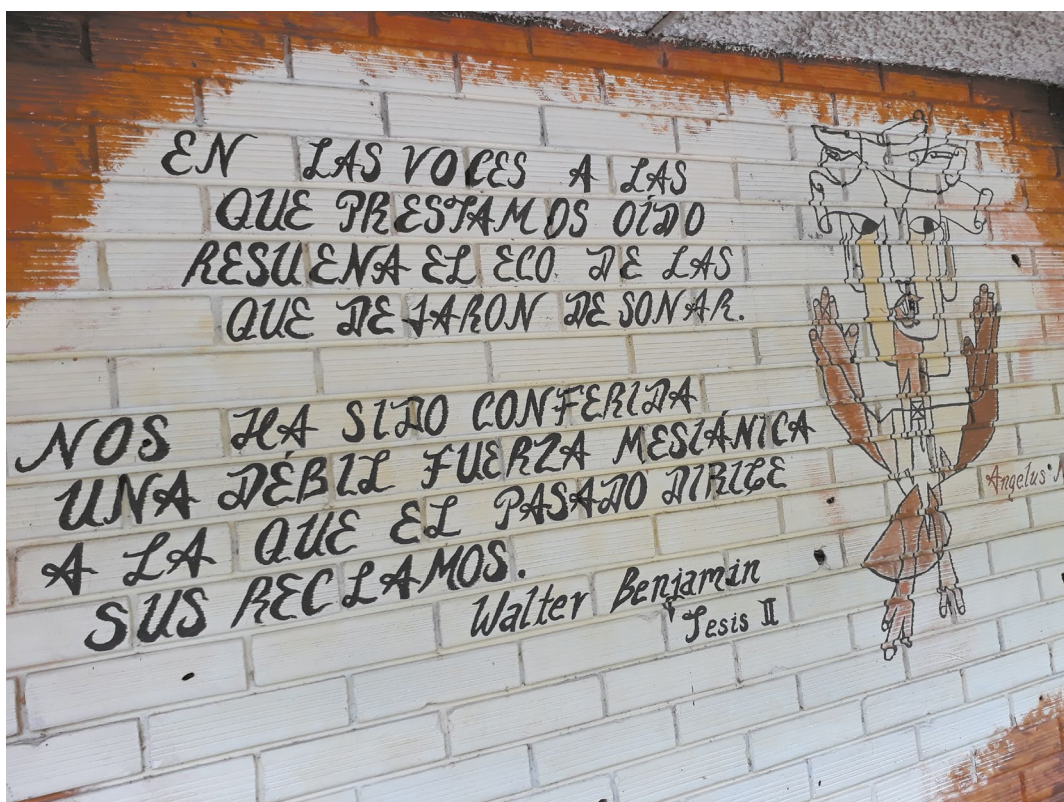 EN LAS VOCES A LAS
QUE PRESTAMOS OÍDO
RESUENA EL ECO DE LAS
QUE DEJARON DE SONAR.
NOS HA SIDO CONFERIDA
UNA DÉBIL FUERZA MESIÁNICA
A LA QUE EL PASADO DIRIGE
SUS RECLAMOS.
Walter Benjamin
Tesis II
Angelus